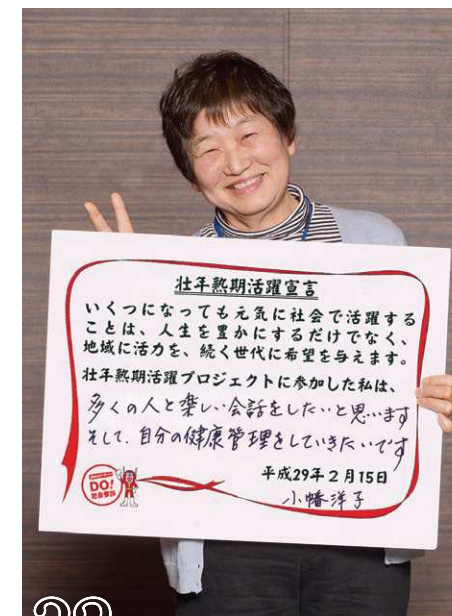 壮年熟期活躍宣言
いくつになっても元気に社会で活躍する
ことは、人生を豊かにするだけでなく、
地域に活力を、続く世代に希望を与えます。
壮年熟期活躍プロジェクトに参加した私は、
多くの人と楽しい会話をしたいと思います
そして、自分の健康管理をしていきたいです
平成29年2月15日
小幡洋子
DO!
社会参加